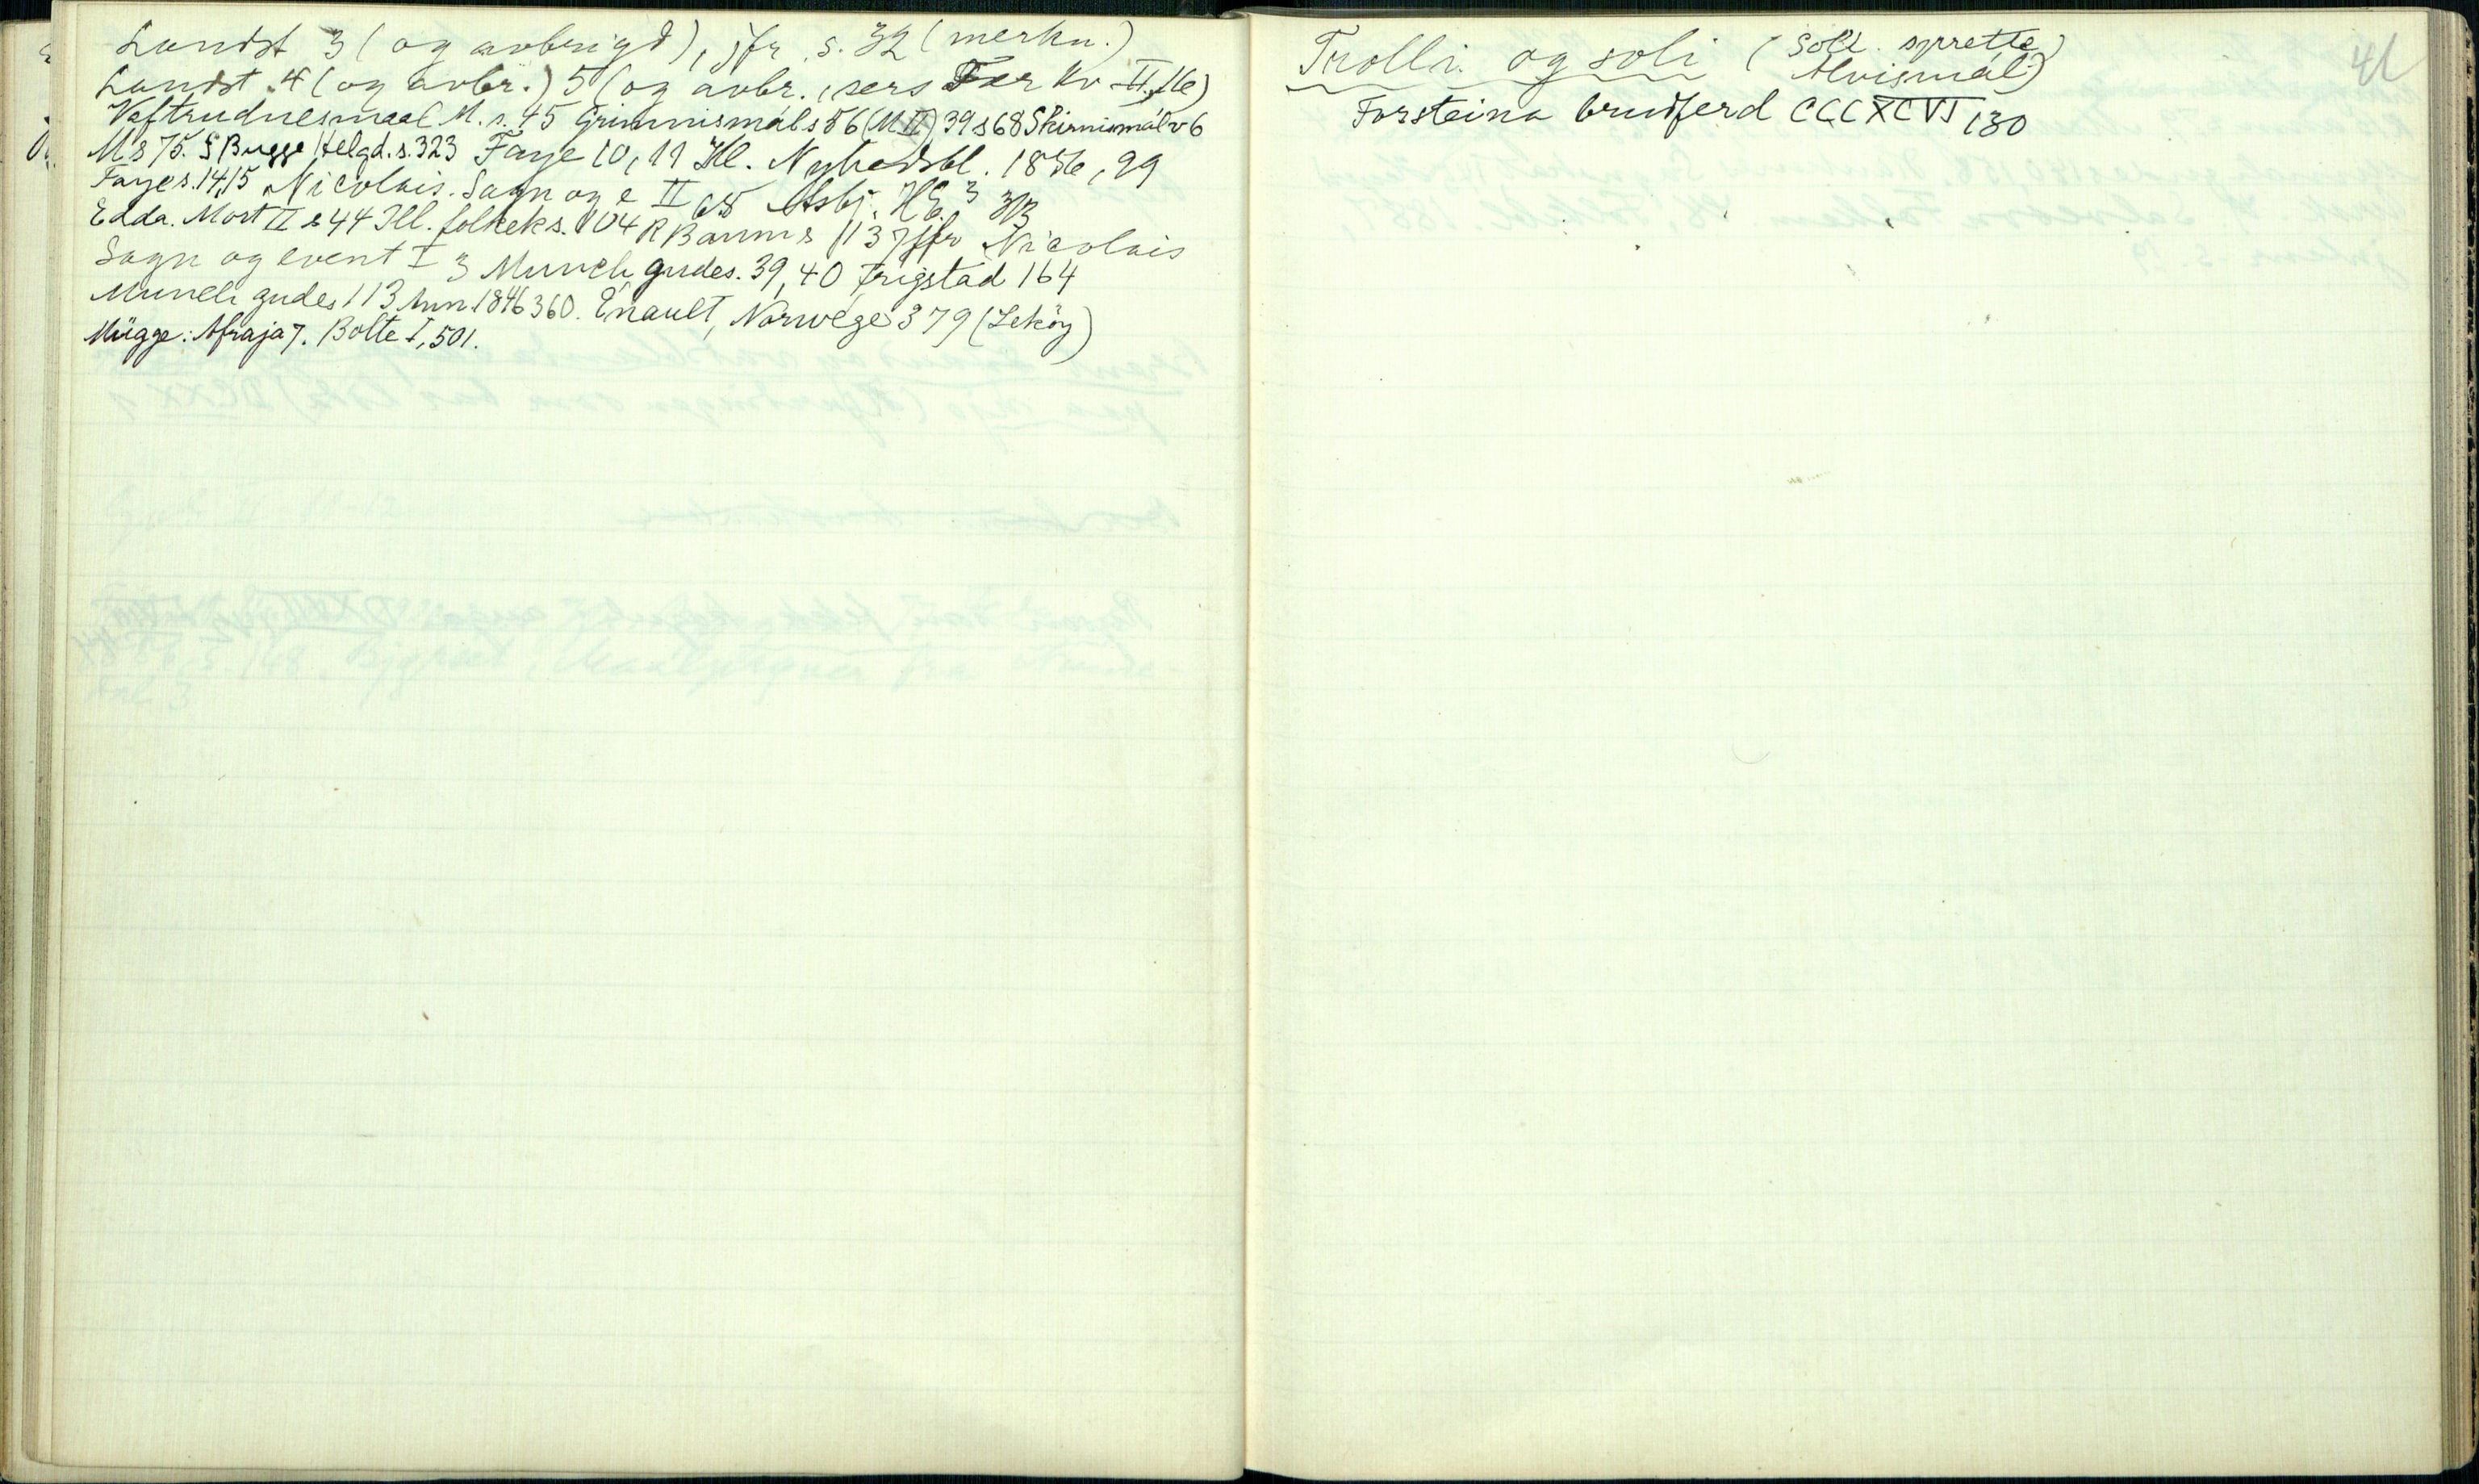 Landst 3 (og avbrigd), jfr. s. 32 (merkn.)
Landst. 4 (og avbr.) 5 (og avbr., sers Fær Kv II, 16)
Vaftrudnesmaal M. s. 45 Grimnismál s 56 (M II) 39 s 68 Skirnismál v 6
M s 75. S Bugge Helgd. s. 323 Faye 10, 11 Ill. Nyhedsbl. 1856, 99
Faye s. 14, 15 Nicolais. Sagn og e II 68 Asbj. HE.³ 313
Edda. Mort II s 44 Ill. folkeks. 104 R Baum s 137 jfr Nicolais
Sagn og event I 3 Munch gudes. 39, 40 Trigstad 164
Munch gudes 113 Ann 1846 360. Énault, Norvége 379 (Leköy)
Mügge: Afraja 7. Bolte I, 501.
Trolli og soli (Soll. sprette Alvismál)
Torsteins brudferd CCCXCVI 130
41